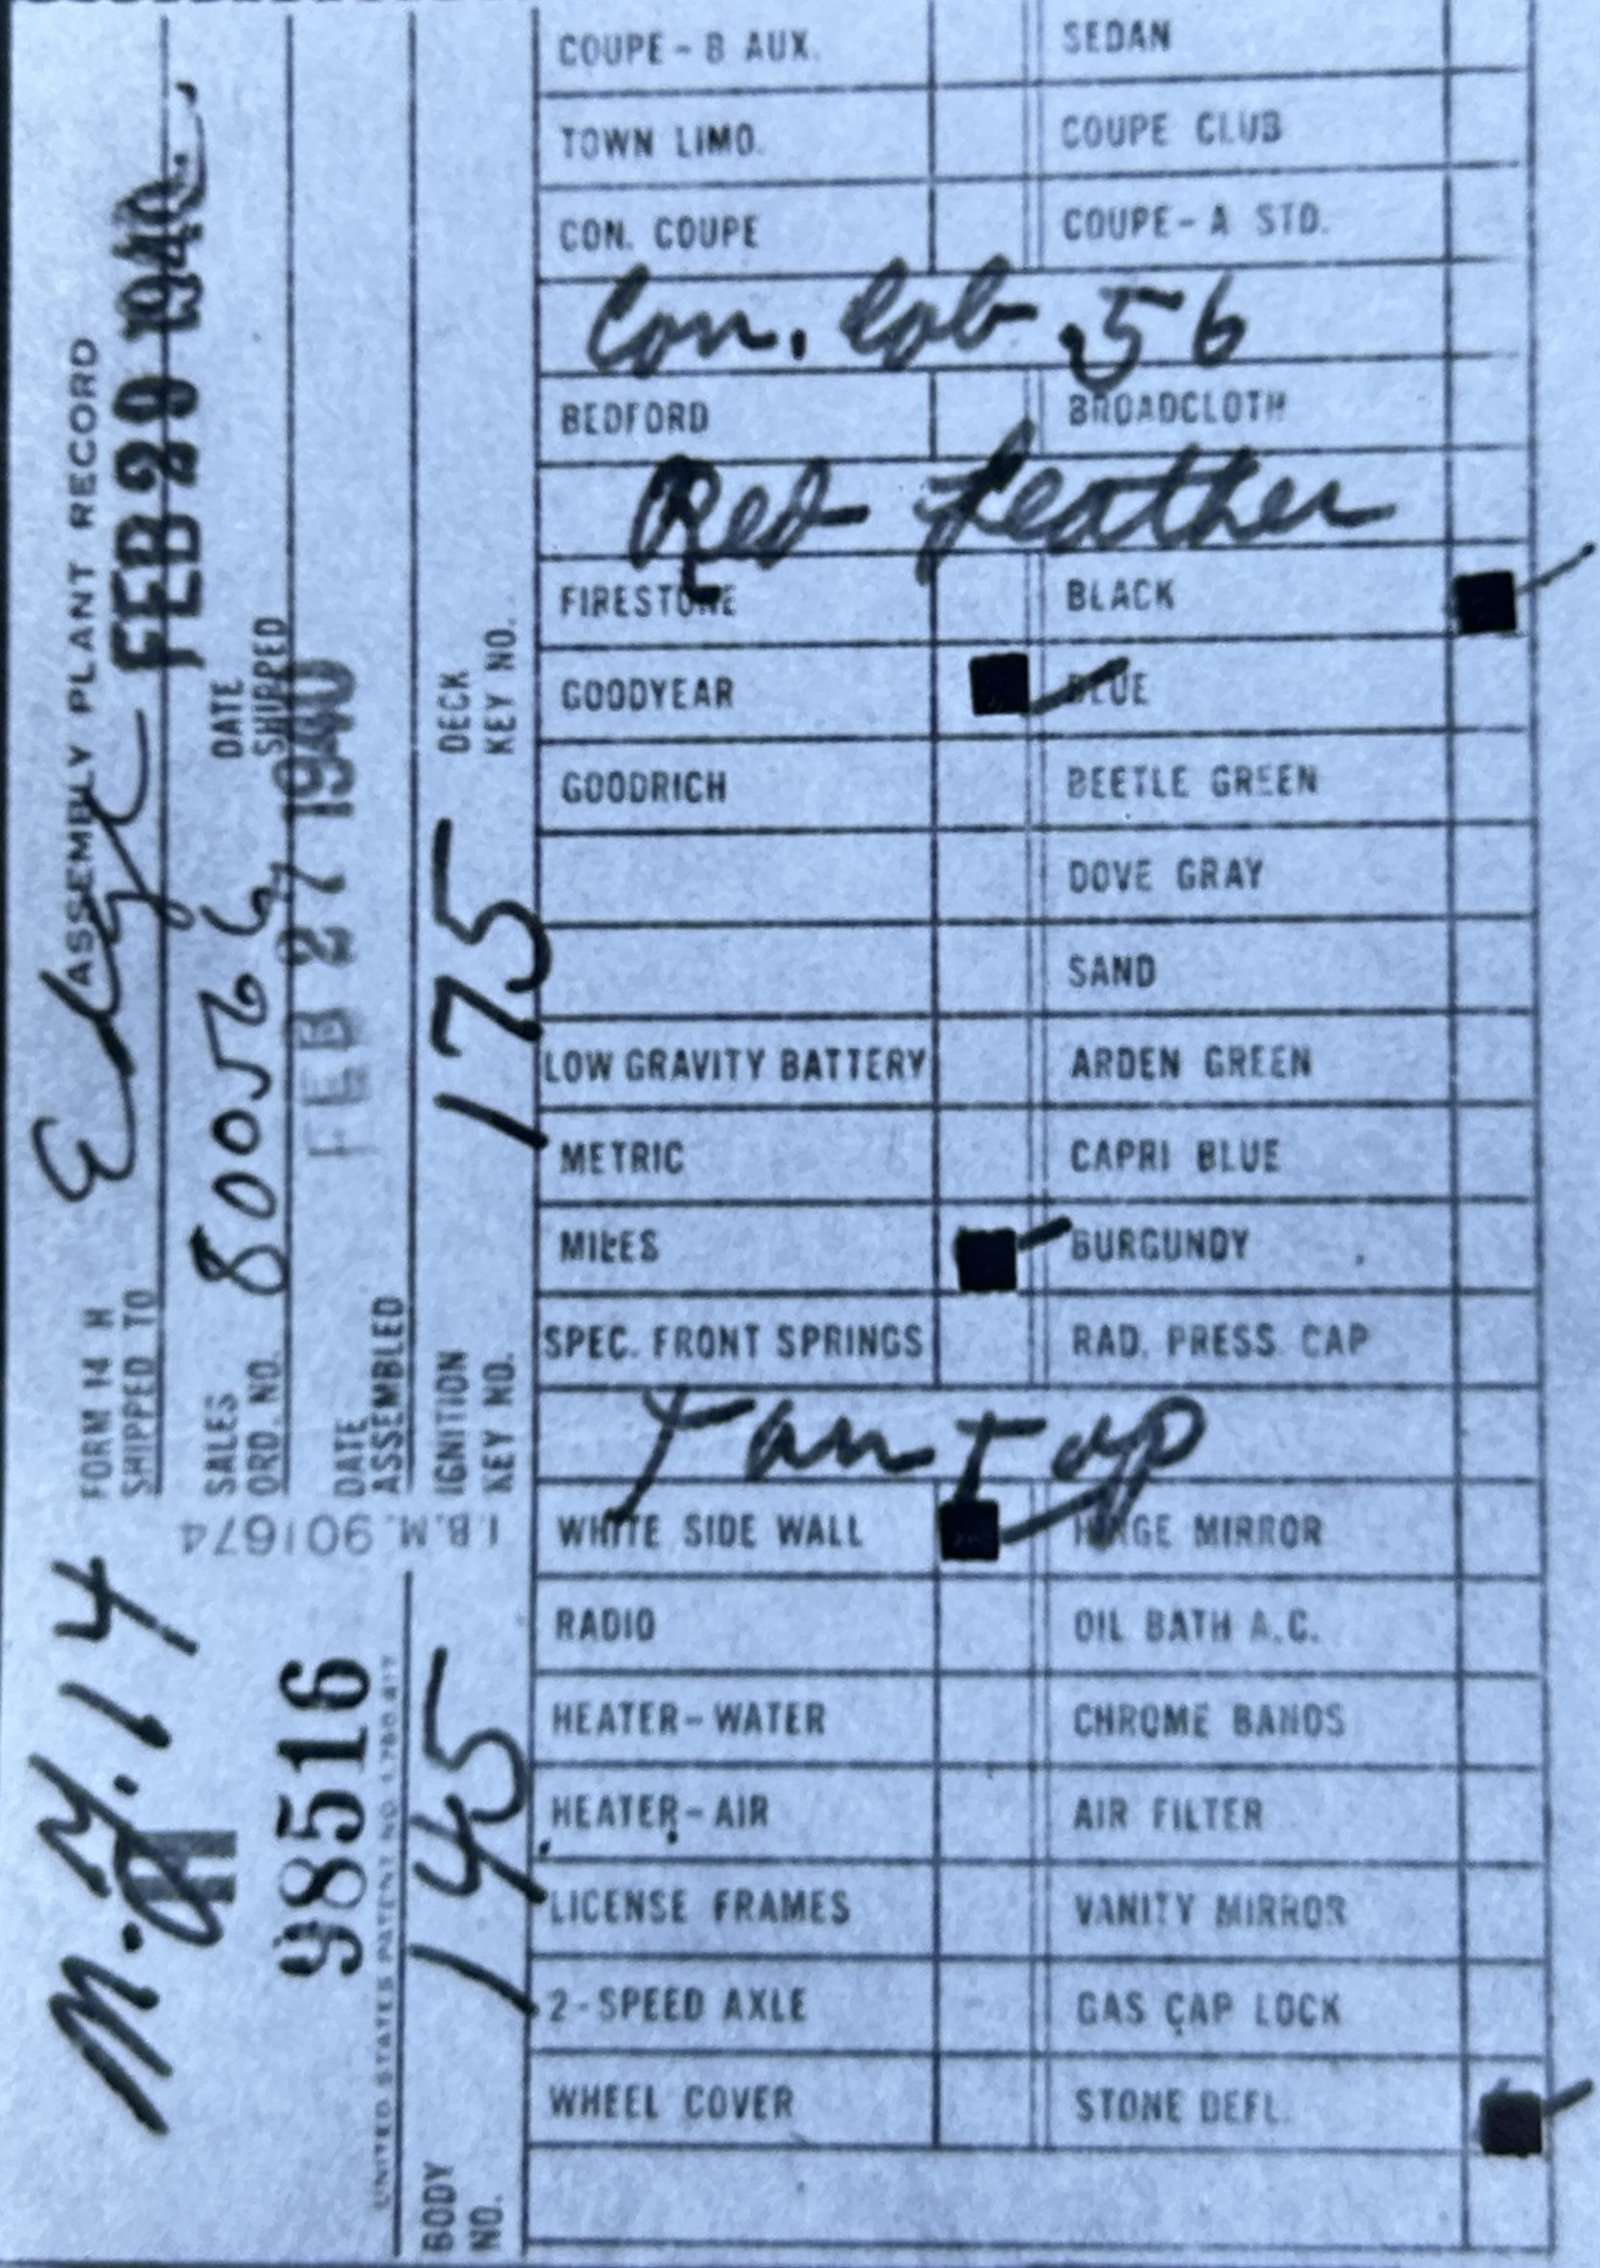 FORM 14 H ASSEMBLY PLANT RECORD
SHIPPED TO FEB 29 1940
SALES ORD. NO. 80056 DATE SHIPPED
DATE ASSEMBLED FEB 27 1940
IGNITION KEY NO. 175 DECK KEY NO.
I.B.M. 901674
14
H 98516
UNITED STATES PATENT NO.
BODY NO. 145
COUPE - B AUX. SEDAN
TOWN LIMO. COUPE CLUB
CON. COUPE COUPE - A STD.
Con. Cab. 56
BEDFORD BROADCLOTH
Red Leather
FIRESTONE BLACK
GOODYEAR BLUE
GOODRICH BEETLE GREEN
DOVE GRAY
SAND
LOW GRAVITY BATTERY ARDEN GREEN
METRIC CAPRI BLUE
MILES BURGUNDY
SPEC. FRONT SPRINGS RAD. PRESS. CAP
Tan Top
WHITE SIDE WALL HINGE MIRROR
RADIO OIL BATH A.C.
HEATER - WATER CHROME BANDS
HEATER - AIR AIR FILTER
LICENSE FRAMES VANITY MIRROR
2 - SPEED AXLE GAS CAP LOCK
WHEEL COVER STONE DEFL.